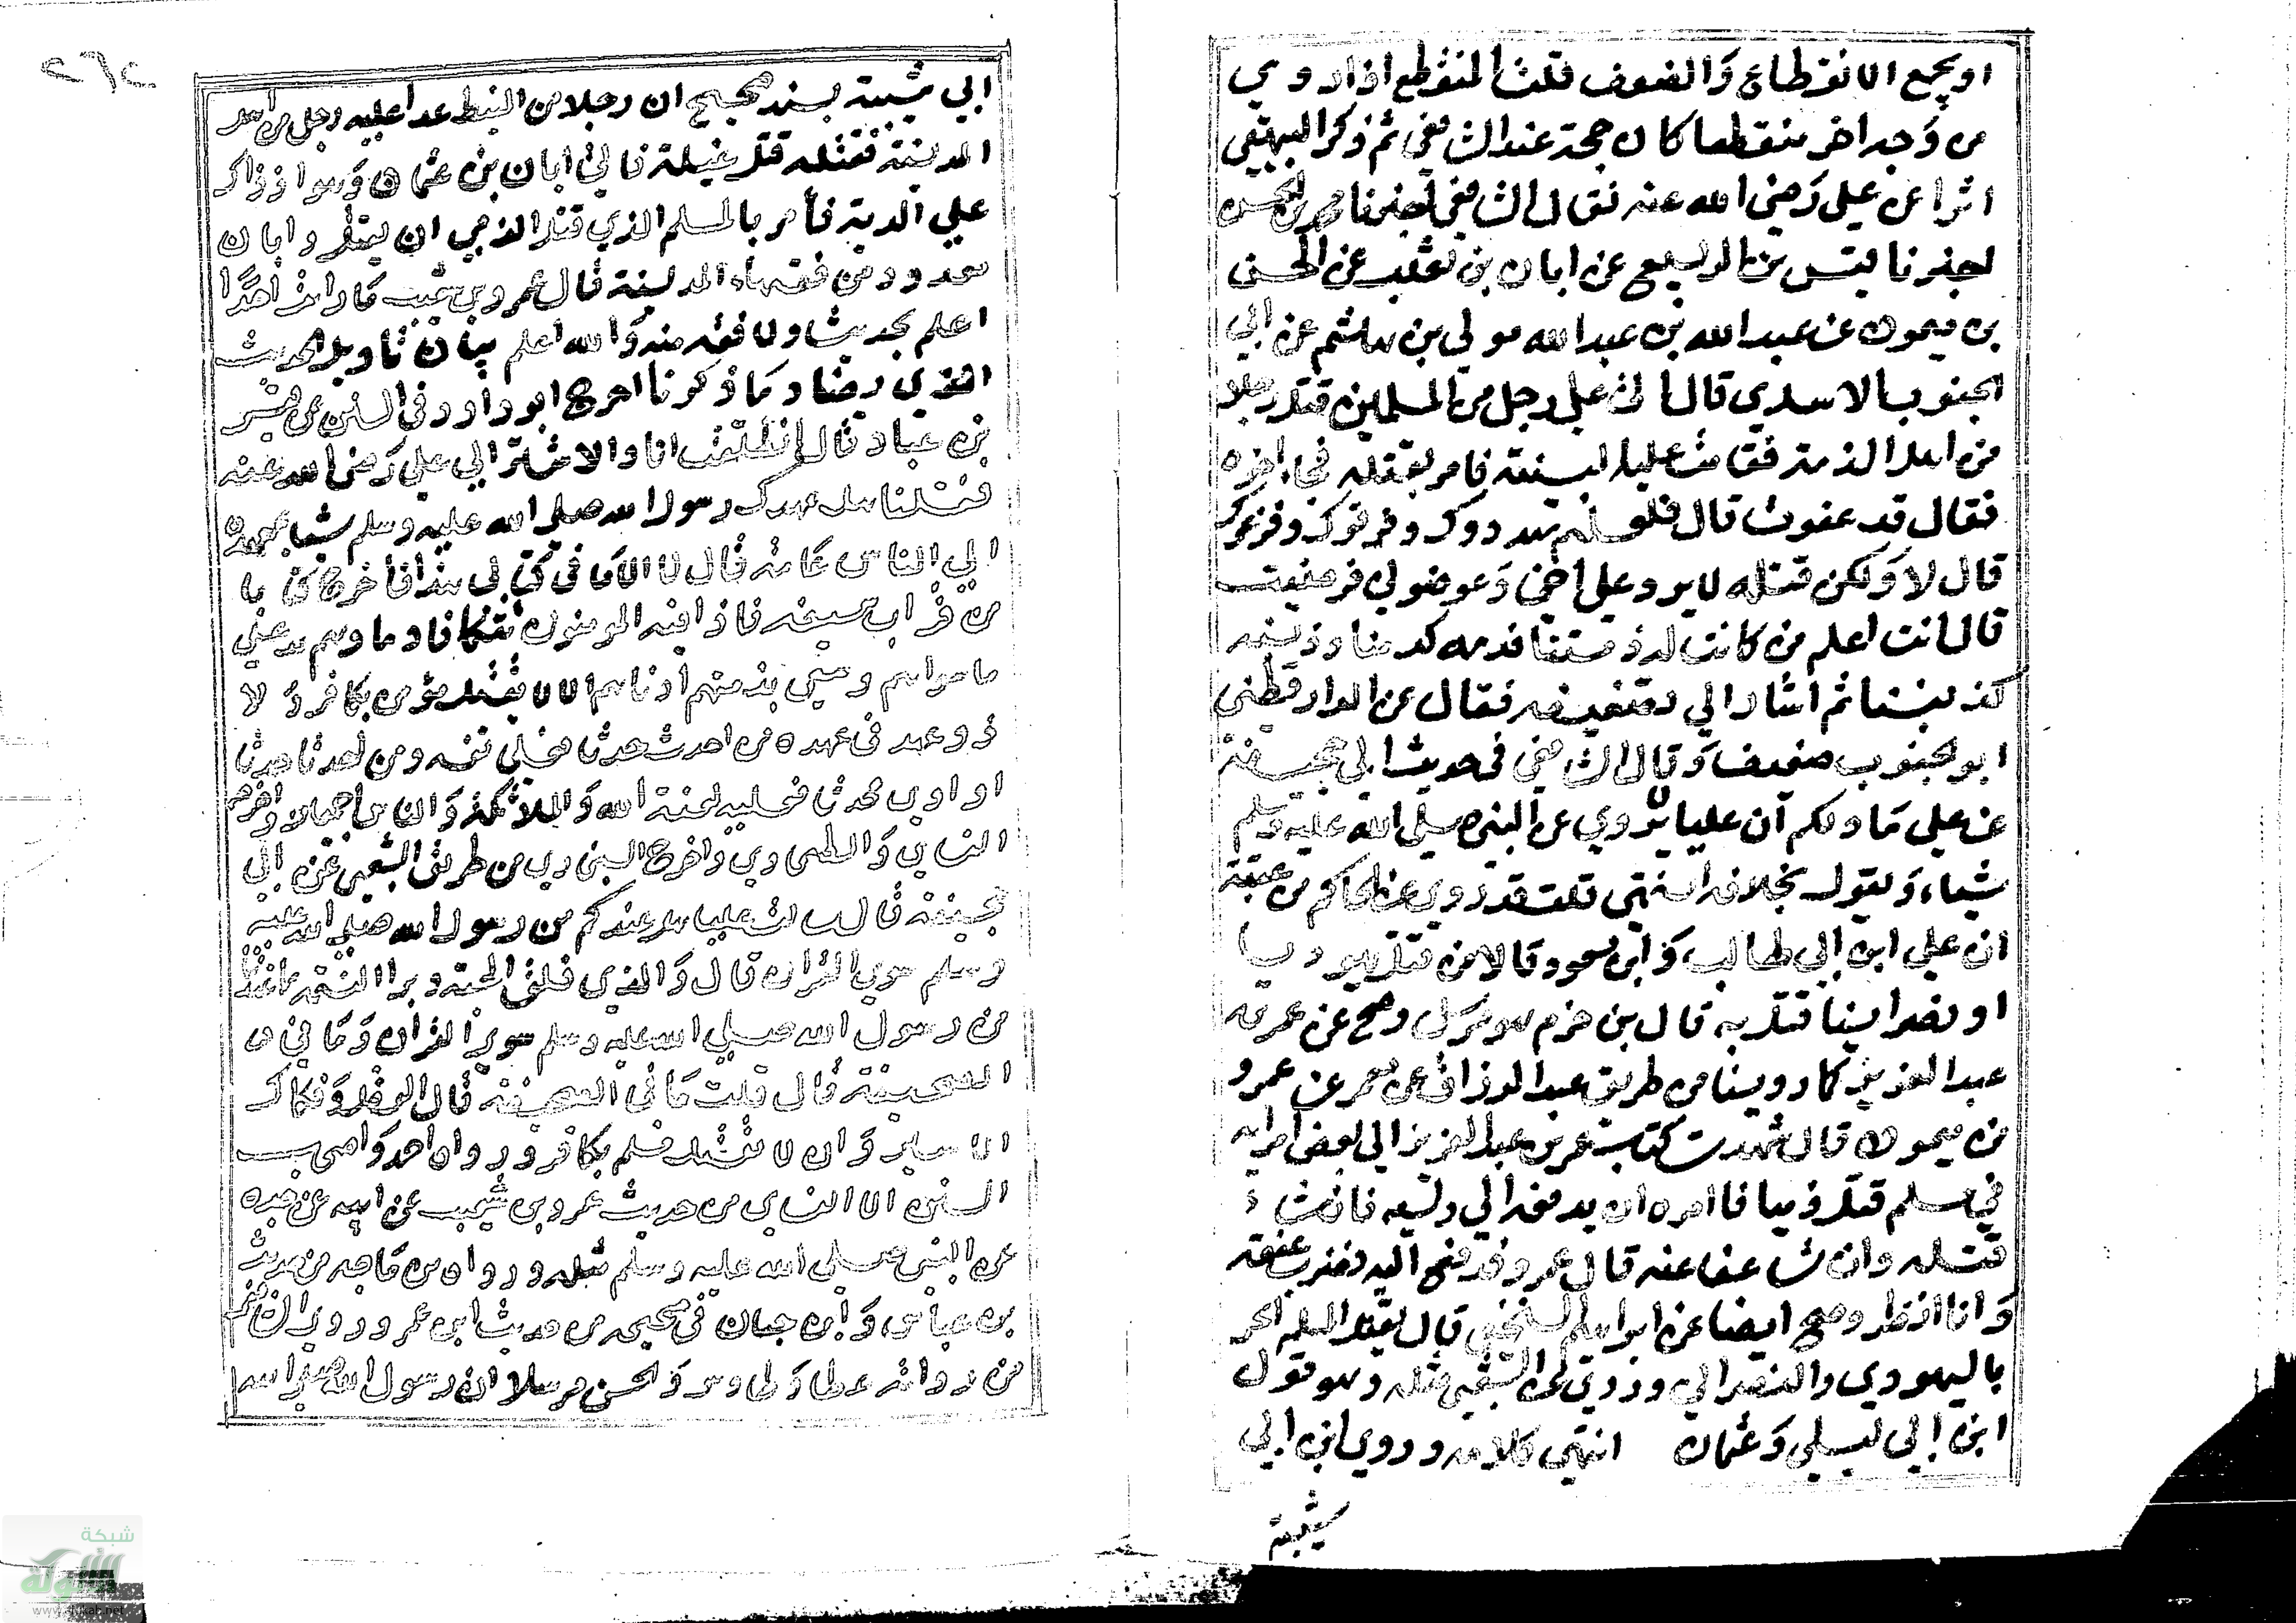 او يجمع الانقطاع والضعف قلنا المنقطع اذا روي
من وجه اخر منقطعا كان حجة عند الشافعي ثم ذكر البيهقي
اثرا عن علي رضي الله عنه فقال الشافعي اخبرنا محمد بن الحسن
اخبرنا قيس بن الربيع عن ابان بن تغلب عن الحسن
بن ميمون عن عبد الله بن عبد الله مولي بن هاشم عن ابي
الجنوب الاسدي قال اتي علي رجل من المسلمين قتل رجلا
من اهل الذمة فقامت عليه البينة فامر بقتله فجاء اخوه
فقال قد عفوت قال فلعلهم هددوك وفرقوك وفزعوك
قال لا ولكن قتله لا يرد علي اخي وعوضوني فرضيت
قال انت اعلم من كانت له ذمتنا فدمه كدمنا وديته
كديتنا ثم اشار الي تضعيفه فقال عن الدارقطني
ابو الجنوب ضعيف وقال الشافعي في حديث ابي جحيفة
عن علي ما دلكم ان عليا يروي عن النبي صلي الله عليه وسلم
شياء ويقول بخلافه انتهي قلت قد روي عن الحاكم من عتيبة
ان علي ابن ابي طالب وابن مسعود قالا من قتل يهوديا
او نصرانيا قتل به قال بن حزم هو مرسل وصح عن عمر بن
عبد العزيز كما روينا من طريق عبد الرزاق عن معمر عن عمرو
بن ميمون قال شهدت كتاب عمر بن عبد العزيز الي بعض امرايه
في مسلم قتل ذميا فاامره ان يدفعه الي وليه فان شاء
قتله وان شا عفا عنه قال عمرو فدفع اليه فضرب عنقه
وانا انظر وصح ايضا عن ابراهيم النخعي قال يقتل المسلم الحر
باليهودي والنصراني وروي عن الشعبي مثله وهو قول
ابن ابي ليلي وعثمان انتهي كلامه وروي ابن ابي
شيبة
ابي شيبة بسند صحيح ان رجلا من النبط عدا عليه رجل من اهل
المدينة فقتله قتل غيلة فاتي ابان بن عثمان وهو اذ ذاك
علي المدينة فأمر بالمسلم الذي قتل الذمي ان يقتل وابان
معدود من فقهاء المدينة قال عمرو بن شعيب ما رايت احدا
اعلم بحديث ولا فقه منه والله اعلم بيان تاويل الحديث
الذي يضاد ما ذكرنا اخرج ابو داود في السنن عن قيس
بن عباد قال انطلقت انا والاشتر الي علي رضي الله عنه
فقلنا هل عهدك رسول الله صلي الله عليه وسلم شيا لم يعهده
الي الناس عامة قال لا الا ما في كتابي هذا فاخرج كتابا
من قراب سيفه فاذا فيه المومنون تتكافا دماوهم يد علي
ما سواهم ويسعي بذمتهم ادناهم الا لا يقتل مؤمن بكافر ولا
ذو عهد في عهده من احدث حدثا فعلي نفسه ومن احدث حدثا
او اوي محدثا فعليه لعنة الله والملائكة والناس اجمعين واخرجه
النساي والطحاوي واخرج البخاري من طريق الشعبي عن ابي
جحيفة قال سالت عليا هل عندكم من رسول الله صلي الله عليه
وسلم سوي القران قال والذي فلق الحبة وبرا النسمة ما عندنا
من رسول الله صلي الله عليه وسلم سوي القران وما في
الصحيفة قال قلت ما في الصحيفة قال العقل وفكاك
الاسير وان لا يقتل مسلم بكافر ورواه احمد واصحاب
السنن الا النساي من حديث عمرو بن شعيب عن ابيه عن جده
عن النبي صلي الله عليه وسلم مثله ورواه بن ماجه من حديث
بن عباس وابن حبان في صحيحه من حديث ابن عمر وروي الشافعي
من رواية عطا وطاوس والحسن مرسلا ان رسول الله صلي الله
شبكة
الألوكة
www.alukah.net